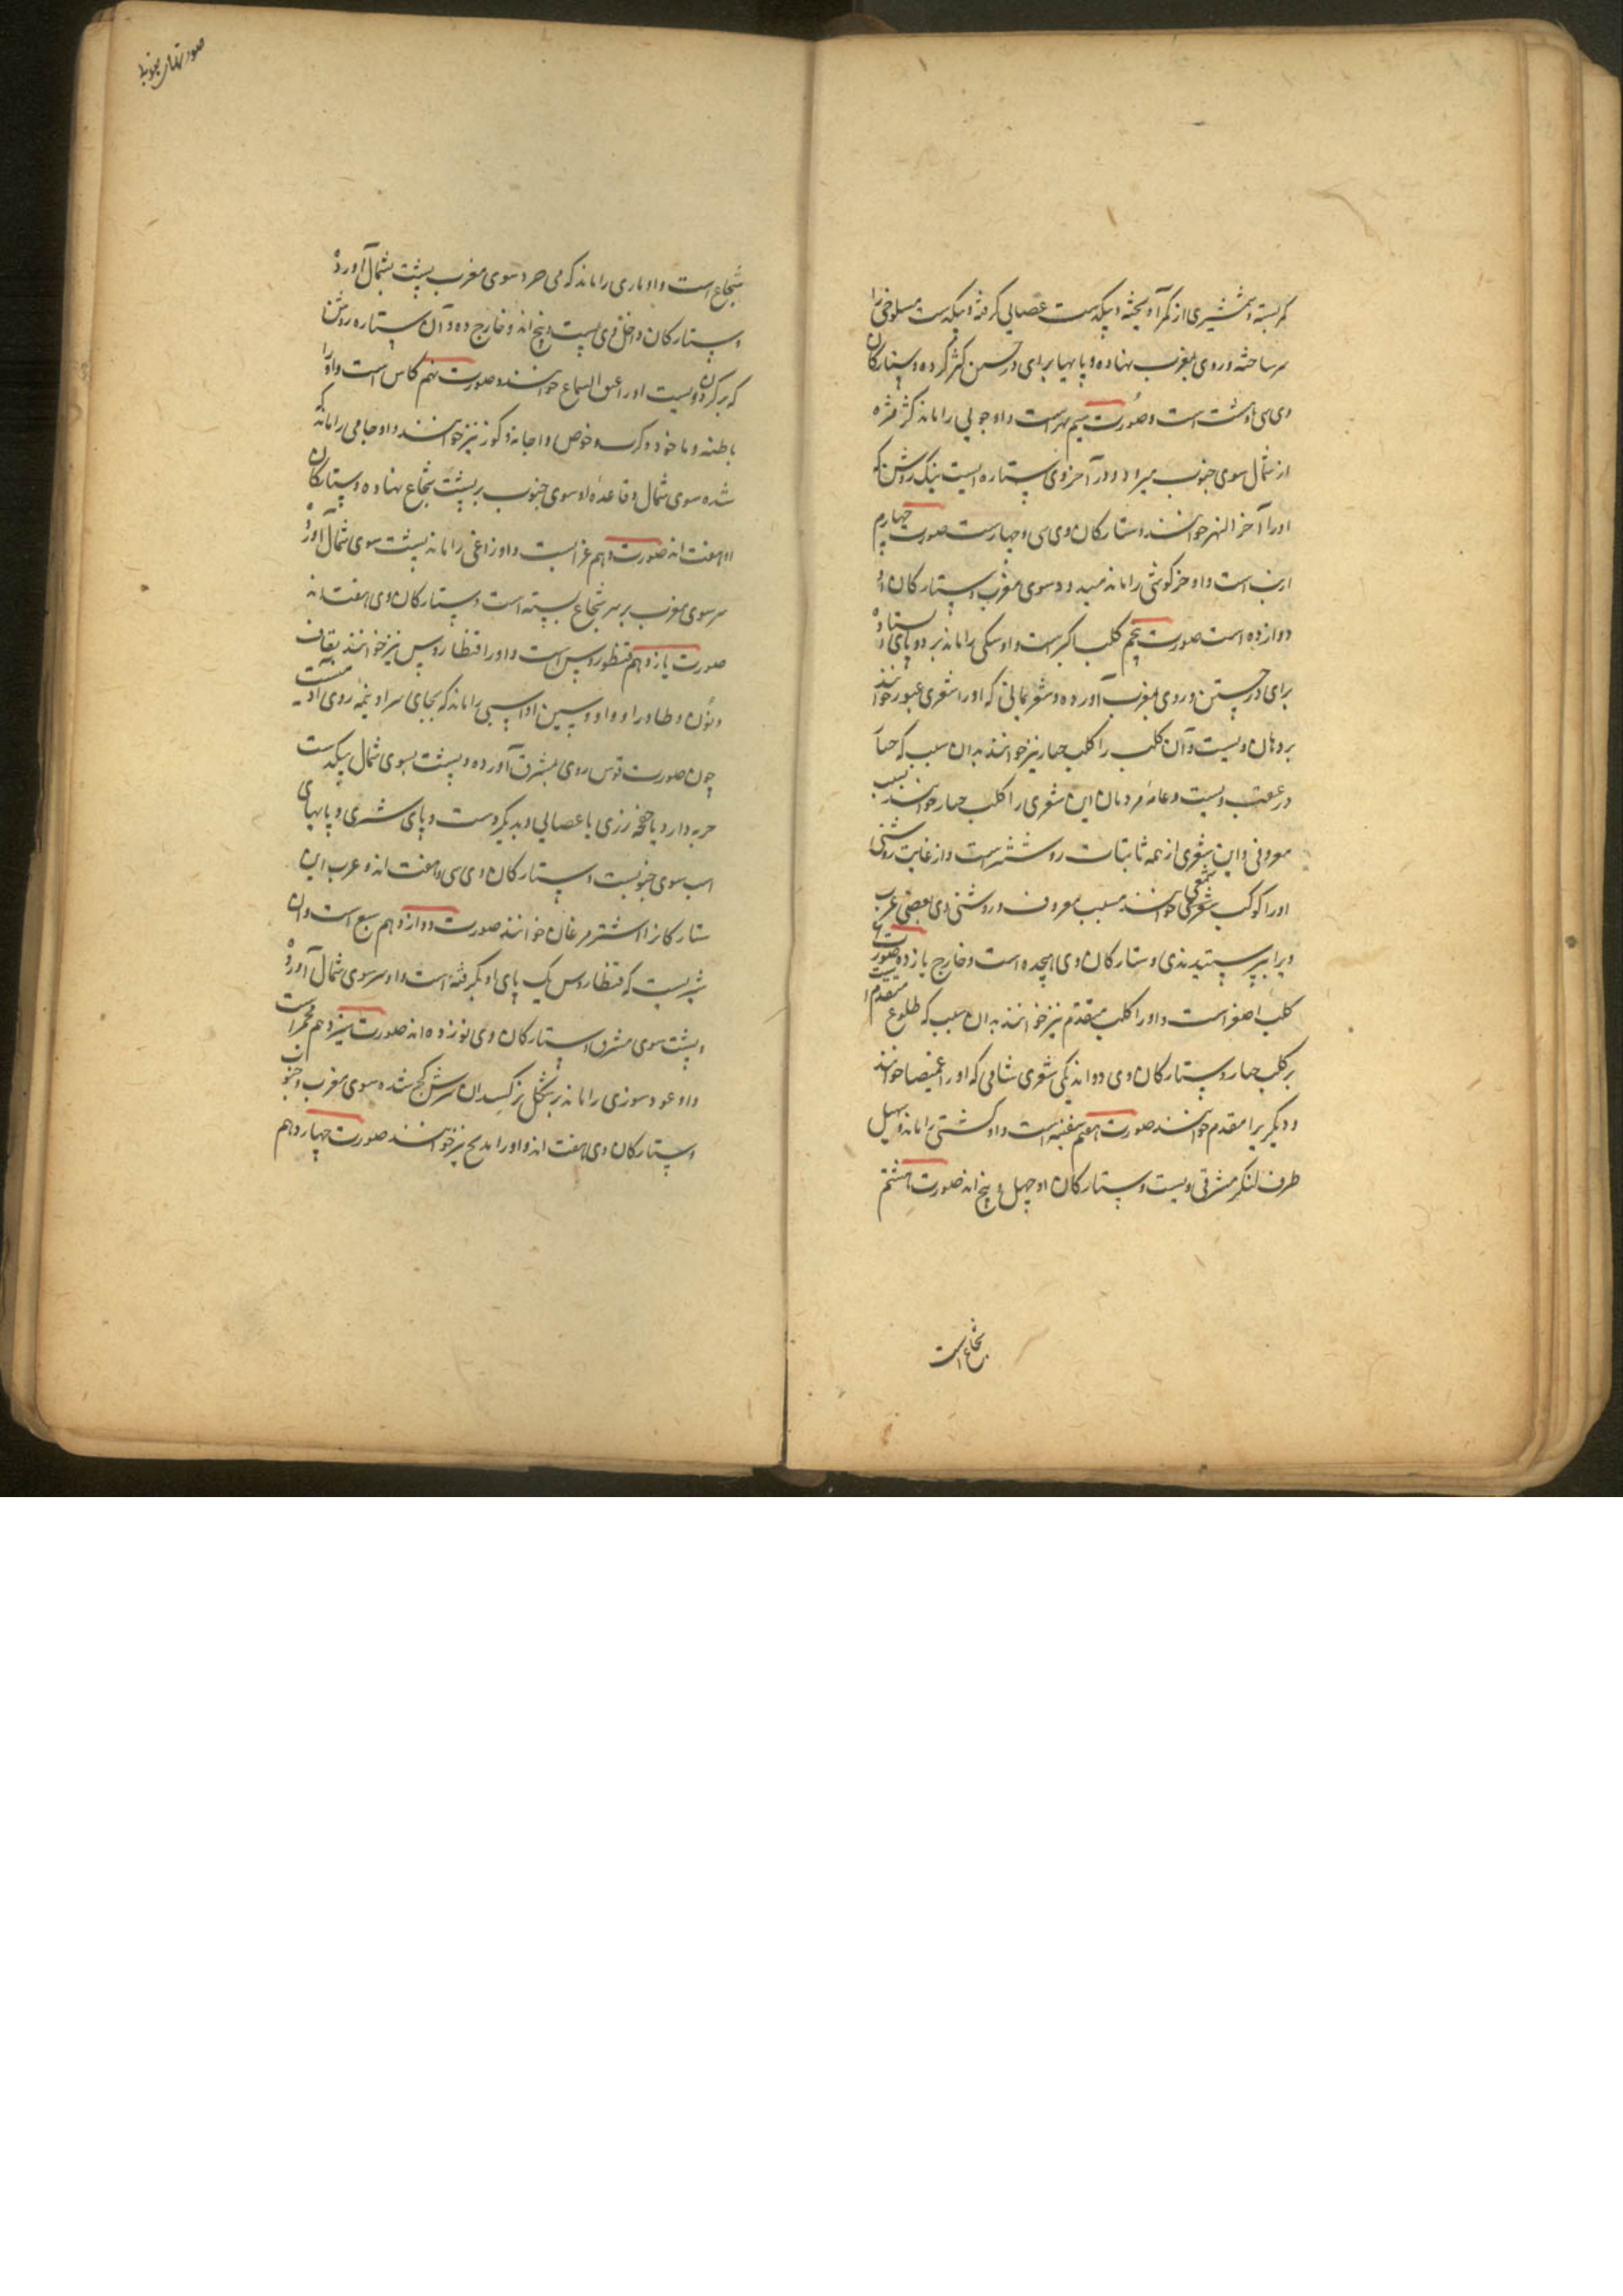 کمر بسته و شمشیری از کمر آویخته و بیکدست عصایی گرفته و بیکدست مسلوخی را
سر ساخته و روی بمغرب نهاده و پایها برای در جستن کژ کرده و ستارکان
وی سی و هشت است و صورت سیم نهر است و او جویی را ماند کژ مژ
از شمال سوی جنوب میرود و در آخر وی ستاره ایست نیک روشن که
او را آخر النهر خوانند و ستارکان وی سی و چهارست صورت چهارم
ارنب است و او خرکوشی را ماند میدود سوی مغرب و ستارکان او
دوازده است صورت پنجم کلب اکبر است و او سکی را ماند بر دو پای ایستاده
برای در جستن و روی بمغرب آورده و شعر یمانی که او را شعری عبور خوانند
بر دهان ویست و آن کلب را کلب جبار نیز خوانند بدان سبب که جبار
در عقب ویست و عامه مردمان این شعری را کلب جبار خوانند بسبب
معروفی و این شعری از همه ثابتات روشنتر است و از غایت روشنی
او را کوکب شعری خوانند بسبب معروف و روشنی وی بعضی عرب
ویرا می پرستیدندی و ستارکان وی هجده است و خارج یازده صورت
کلب اصغر است و او را کلب متقدم نیز خوانند بدان سبب که طلوع متقدم است
بر کلب جبار و ستارکان وی دو اند یکی شعری شامی که او را غمیصا خوانند
و دیگر یرا مقدم خوانند صورت هفتم سفینه است و او کشتی را ماند و سهیل
طرف لنکر مشرقی ویست و ستارکان او چهل و پنج اند صورت هشتم
شجاع است
صورتهای جنوبی
شجاع است و او ماری را ماند که می سوی مغرب پشت بشمال آورده
و ستارکان داخل وی بیست و پنج اند و خارج دو و آن ستاره روشن
که بر کردن ویست او را عنق الشجاع خوانند و صورت نهم کاس است و او را
باطیه و کوز نیز خوانند و او جامی را ماند که
شده سوی شمال و قاعده او سوی جنوب بر پشت شجاع نهاده و ستارکان
او هفت اند صورت دهم غرابست و او زاغی را ماند پشت سوی شمال آورده
سر سوی مغرب بر سر شجاع بسته است و ستارکان وی هفت اند
صورت یازدهم قنطورس است و او را قنطاروس نیز خوانند بقاف
و نون و طا و را و واو و سین او اسبی را ماند که بجای سر او نیمه روی آدمیست
چون صورت قوس روی بمشرق آورده و پشت بسوی شمال بیکدست
حربه دارد یا رزی یا عصایی و بدیکر دست و پای شیری و پایهای
اسب سوی جنوبست و ستارکان وی سی و هفت اند و عرب این
ستارکانرا خوانند صورت دوازدهم سبع است و آن
شیریست که قنطاروس یک پای او بکرفته است و او سر سوی شمال آورده
و پشت سوی مشرق و ستارکان وی نوزده اند صورت سیزدهم مجمره است
و او عود سوزی را ماند بر شکل نرکسدان سرش کج شده سوی مغرب و جنوب
و ستارکان وی هفت اند و او را مذبح نیز خوانند صورت چهاردهم